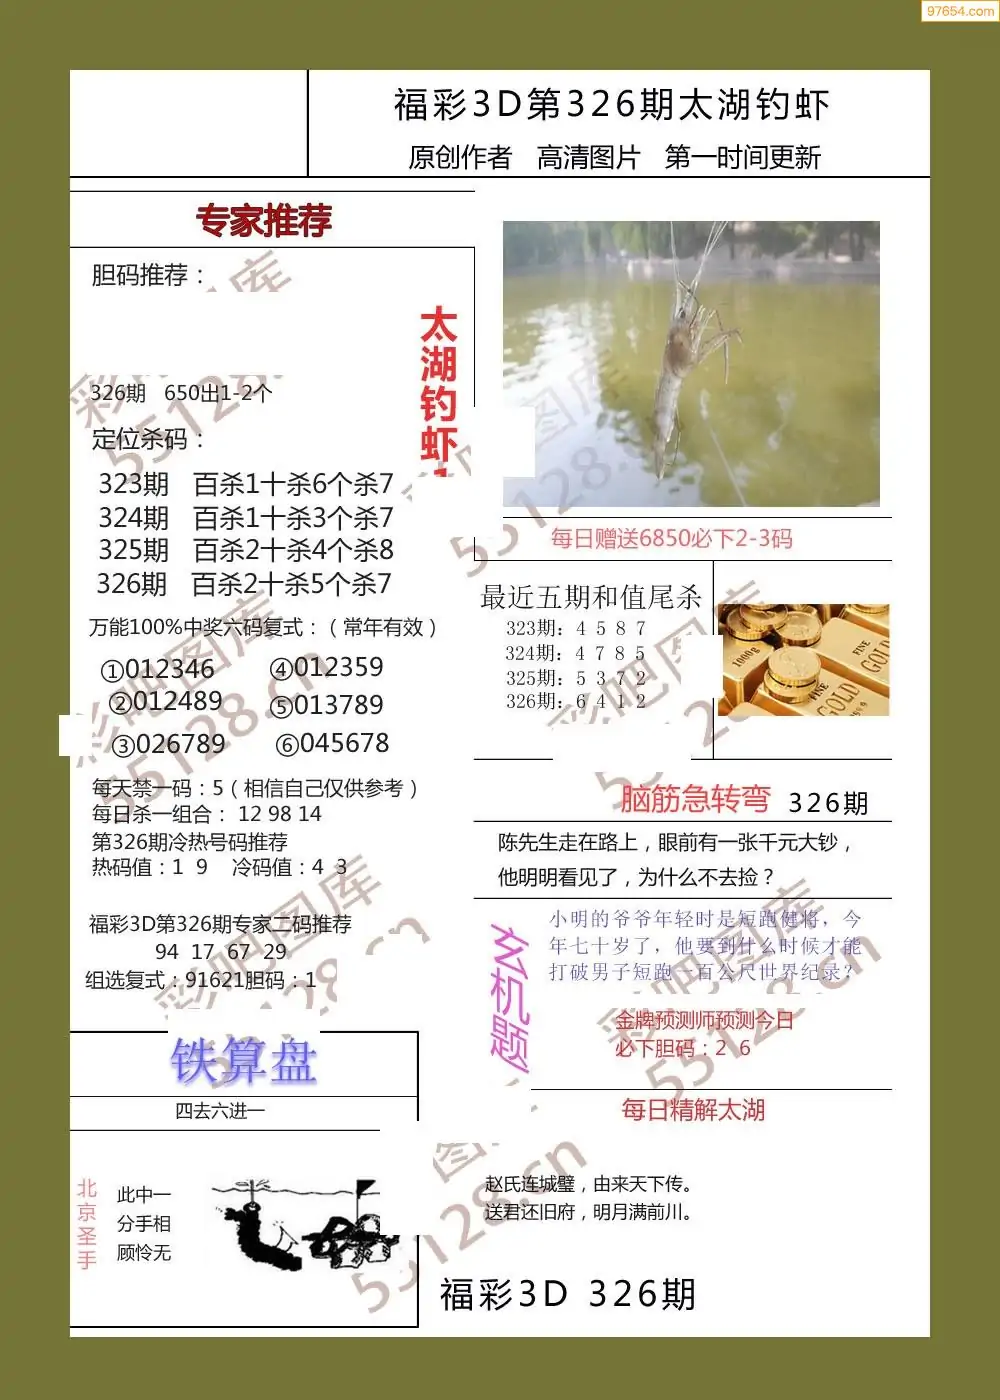 97654.com
福彩3D第326期太湖钓虾
原创作者 高清图片 第一时间更新
专家推荐
胆码推荐：
太湖钓虾
326期 650出1-2个
定位杀码：
323期 百杀1十杀6个杀7
324期 百杀1十杀3个杀7
325期 百杀2十杀4个杀8
326期 百杀2十杀5个杀7
万能100%中奖六码复式：（常年有效）
①012346 ④012359
②012489 ⑤013789
③026789 ⑥045678
每天禁一码：5（相信自己仅供参考）
每日杀一组合： 12 98 14
第326期冷热号码推荐
热码值：1 9 冷码值：4 3
福彩3D第326期专家二码推荐
94 17 67 29
组选复式：91621胆码：1
铁算盘
四去六进一
北京圣手
此中一
分手相
顾怜无
每日赠送6850必下2-3码
最近五期和值尾杀
323期：4 5 8 7
324期：4 7 8 5
325期：5 3 7 2
326期：6 4 1 2
1000g
FINE
GOLD
FINE
GOLD
脑筋急转弯 326期
陈先生走在路上，眼前有一张千元大钞，
他明明看见了，为什么不去捡？
玄机题
小明的爷爷年轻时是短跑健将，今
年七十岁了，他要到什么时候才能
打破男子短跑一百公尺世界纪录？
金牌预测师预测今日
必下胆码：2 6
每日精解太湖
赵氏连城璧，由来天下传。
送君还旧府，明月满前川。
福彩3D 326期
彩吧图库
55128.cn